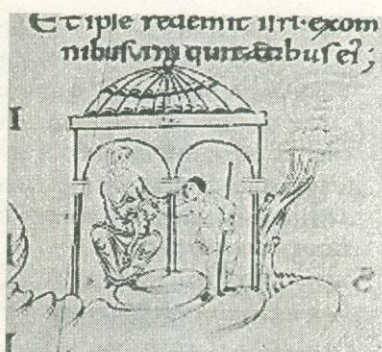 Et ipse redemit isrl·exom
nibus iniquitatibus ei;